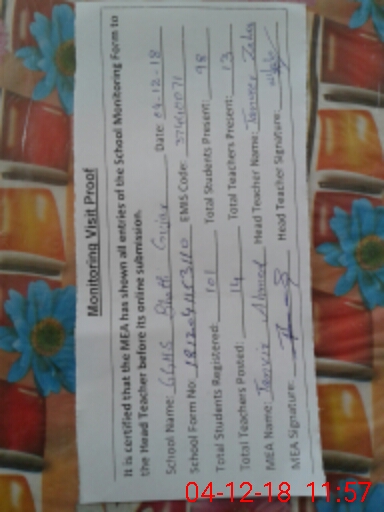 Monitoring Visit Proof
It is certified that the MEA has shown all entries of the School Monitoring Form to
the Head Teacher before its online submission.
School Name: GGHS Gujar Date: 04-12-18
School Form No: EMIS Code:
Total Students Registered: 101 Total Students Present: 98
Total Teachers Posted: 14 Total Teachers Present: 13
MEA Name: Tanvir Ahmed Head Teacher Name:
MEA Signature: Head Teacher Signature:
04-12-18 11:57